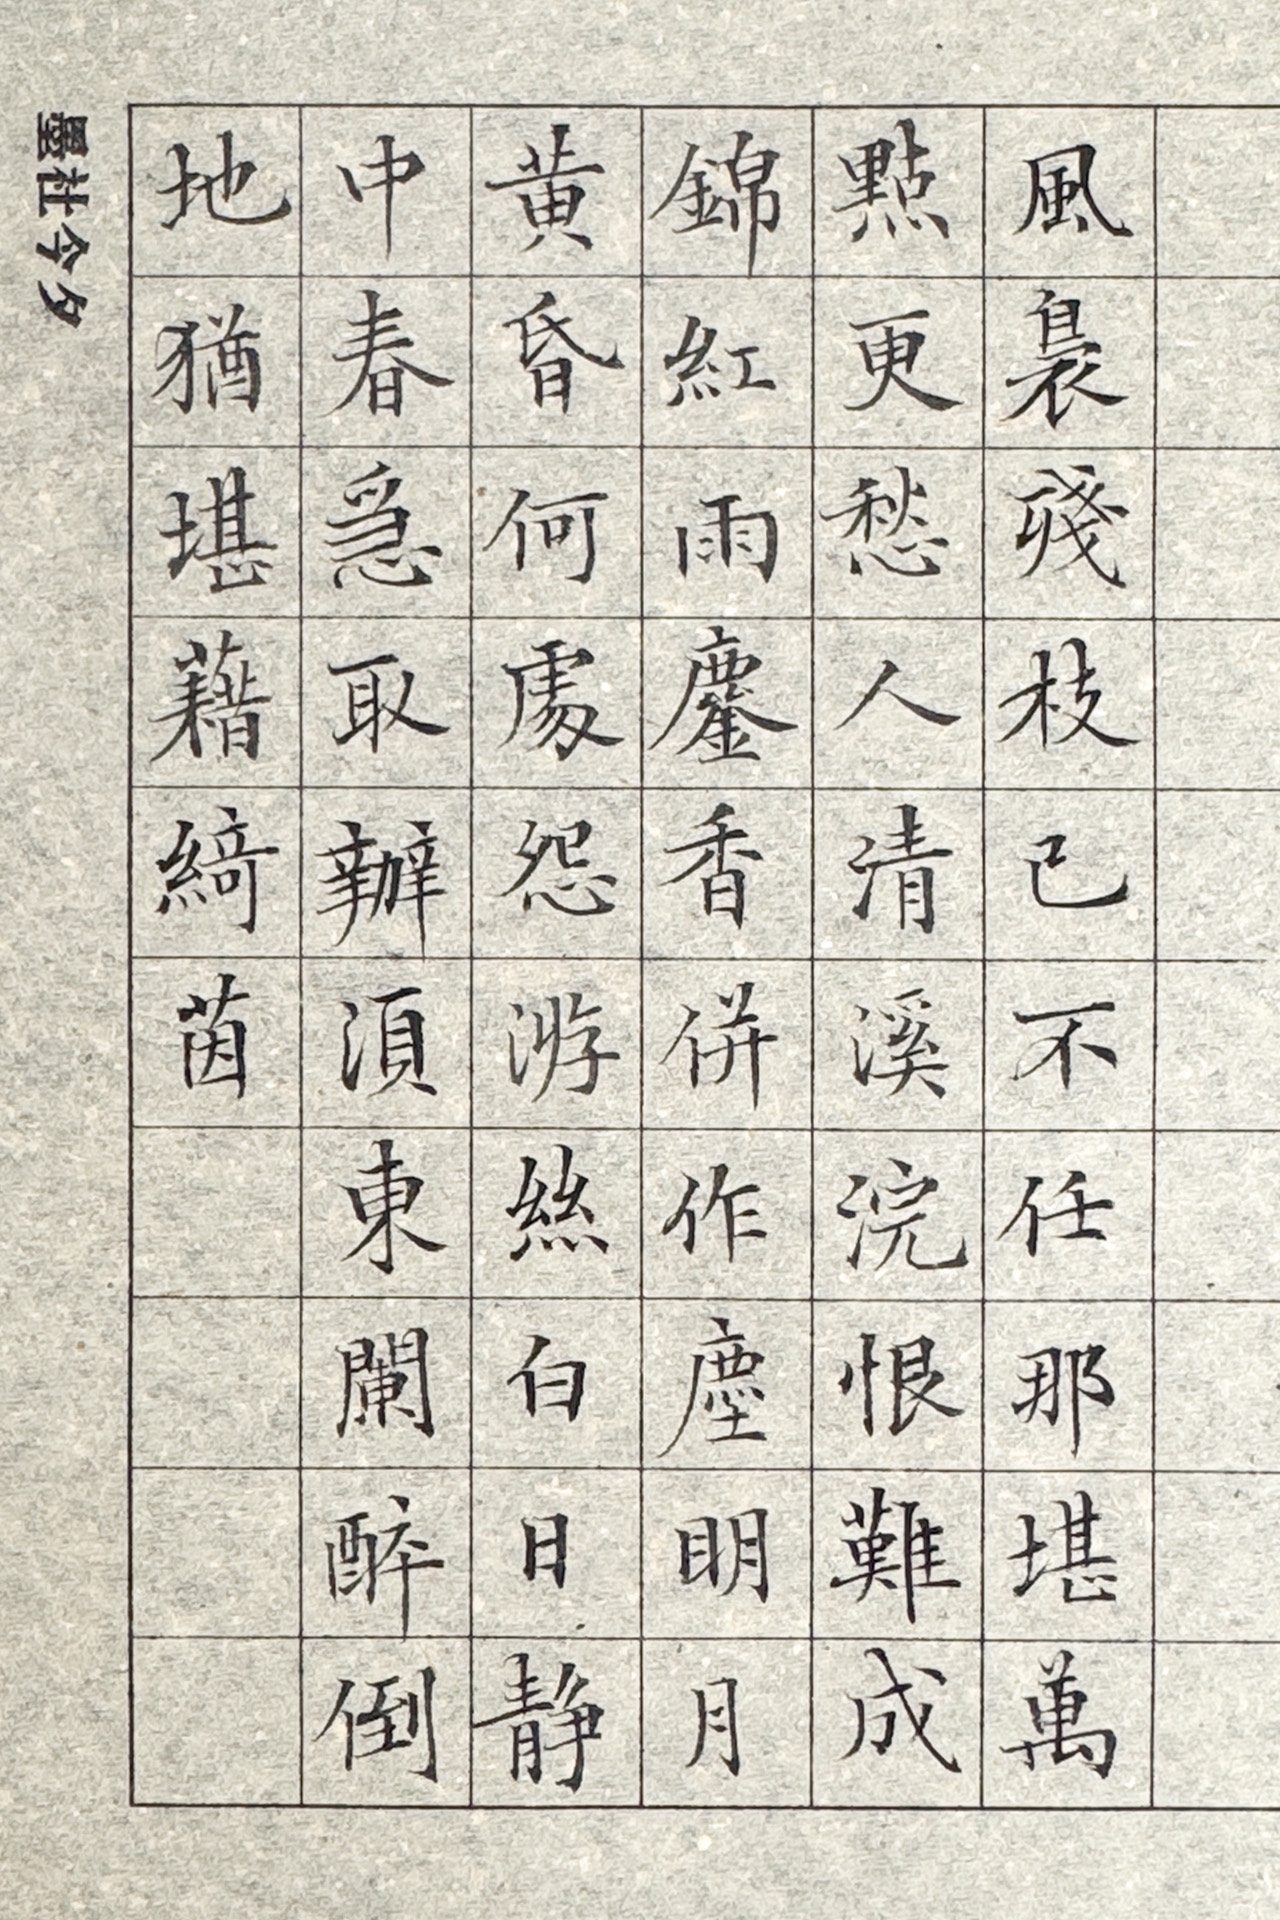 風裊殘枝已不任那堪萬
點更愁人清溪浣恨難成
錦紅雨鏖香併作塵明月
黃昏何處怨游絲白日靜
中春急取辦須東闌醉倒
地猶堪藉綺茵
今夕杜墨